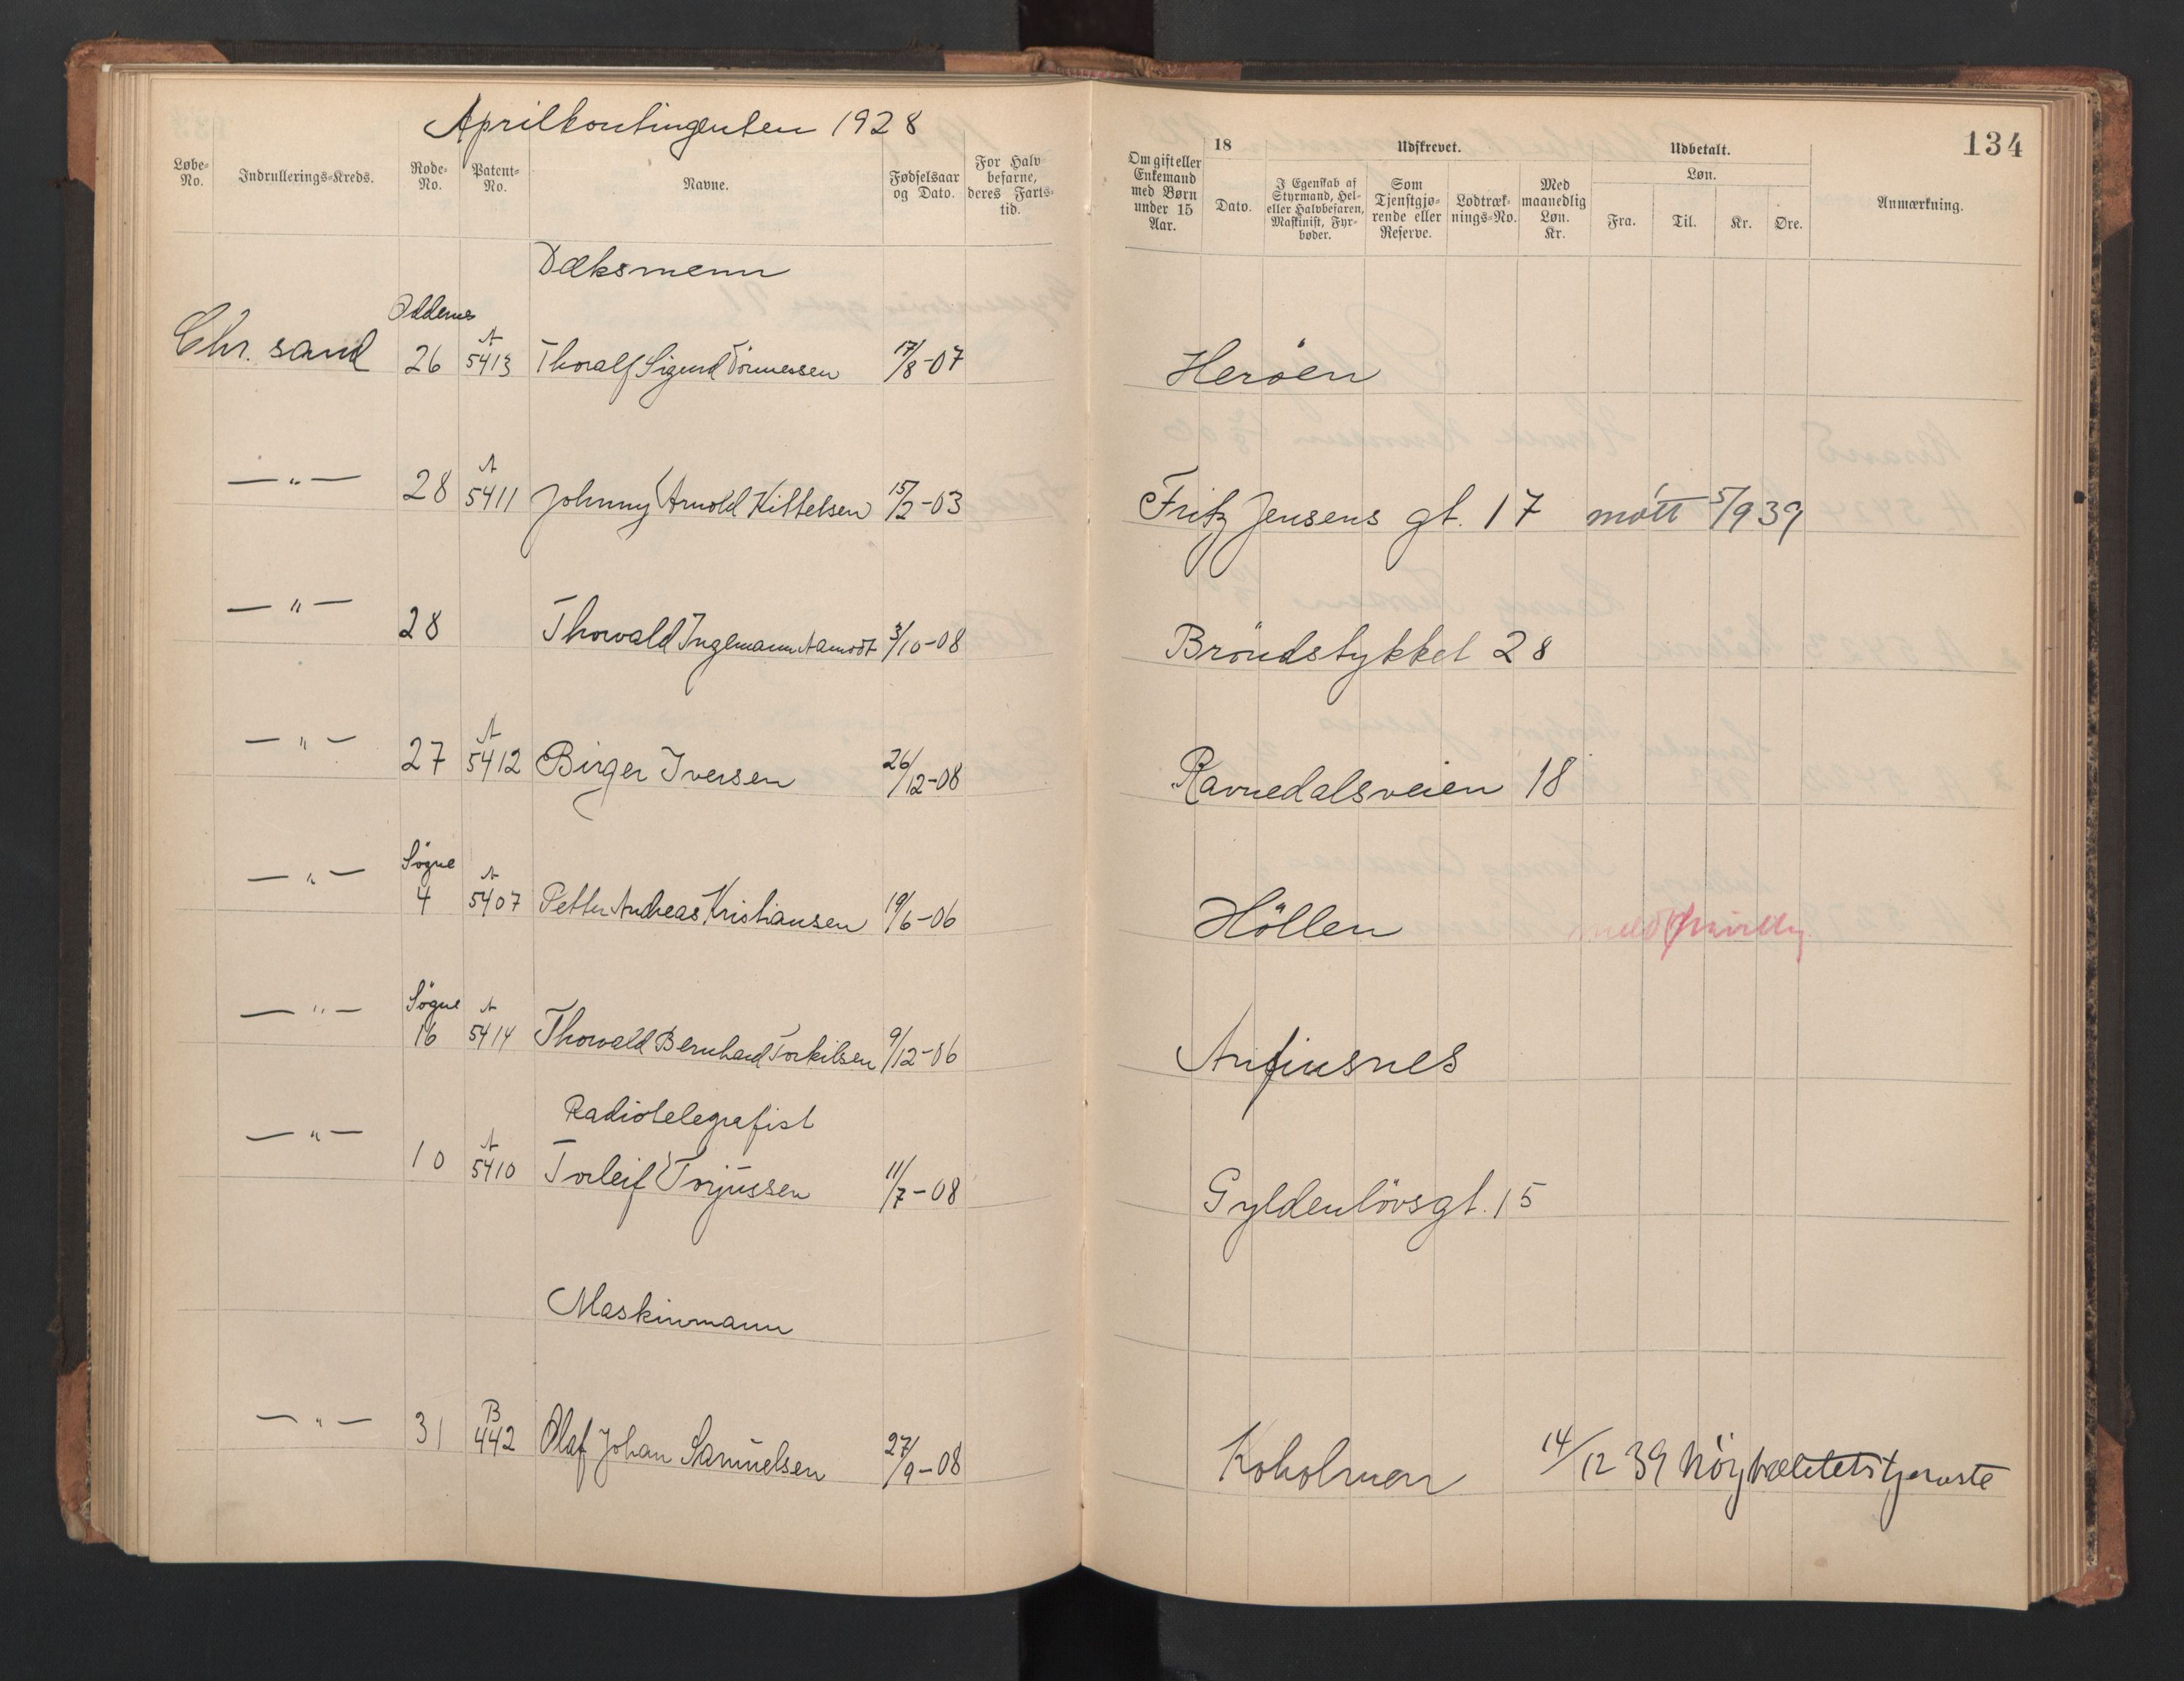 Aprilkontingenten 1928
134
Løbe-No. Indrullerings-Kreds. Rode-No. Patent-No. Navne. Fødselsaar og Dato. For Halvbefarne, deres Fartstid. Om gift eller Enkemand med Børn under 15 Aar. 18 Udskrevet. Dato. I Egenskab af Styrmand, Hel- eller Halvbefaren, Maskinist, Fyrbøder. Som Tjenstgjørende eller Reserve. Lodtræknings-No. Med maanedlig Løn. Kr. Udbetalt. Løn. Fra. Til. Kr. Øre. Anmærkning.
Dæksmenn
Oddernes
Chr. sand 26 A 5413 Thoralf Sigurd Tönnessen 17/8-07 Heröen
— " — 28 A 5411 Johnny Arnold Kittelsen 15/2-03 Fritz Jensens gt. 17 mött 5/9 39
— " — 28 Thorvald Ingemann Aamodt 3/10-08 Bröndstykket 28
— " — 27 A 5412 Birger Iversen 26/12-08 Ravnedalsveien 18
Søgne
— " — 4 A 5407 Petter Andreas Kristiansen 19/6-06 Höllen
Søgne
— " — 16 A 5414 Thorvald Bernhard Torkilsen 9/12-06 Anfinsnes
Radiotelegrafist
— " — 10 A 5410 Torleif Torjussen 11/7-08 Gyldenlövsgt. 15
Maskinmann
— " — 31 B 442 Olaf Johan Samuelsen 27/9-08 Koholmen 14/12 39 Nöytralitetstjeneste